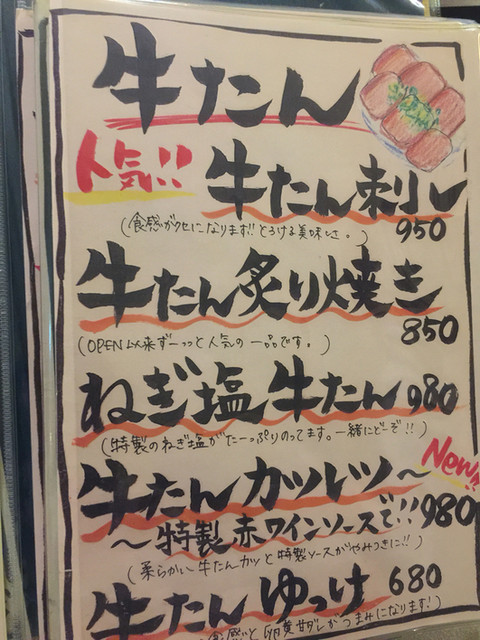 牛たん
人気!!
牛たん刺し
950
(食感がクセになります!!とろける美味しさ。)
牛たん炙り焼き
850
(OPEN以来ずーっっと人気の一品です。)
ねぎ塩牛たん 980
(特製のねぎ塩がたーっぷりのってます。一緒にどーぞ!!)
New!!
牛たんカツレツ〜
〜特製赤ワインソースで!! 980
(柔らかい牛たんカツと特製ソースがやみつきに!!)
牛たんゆっけ 680
食感と卵黄甘ダレがつまみになります!)